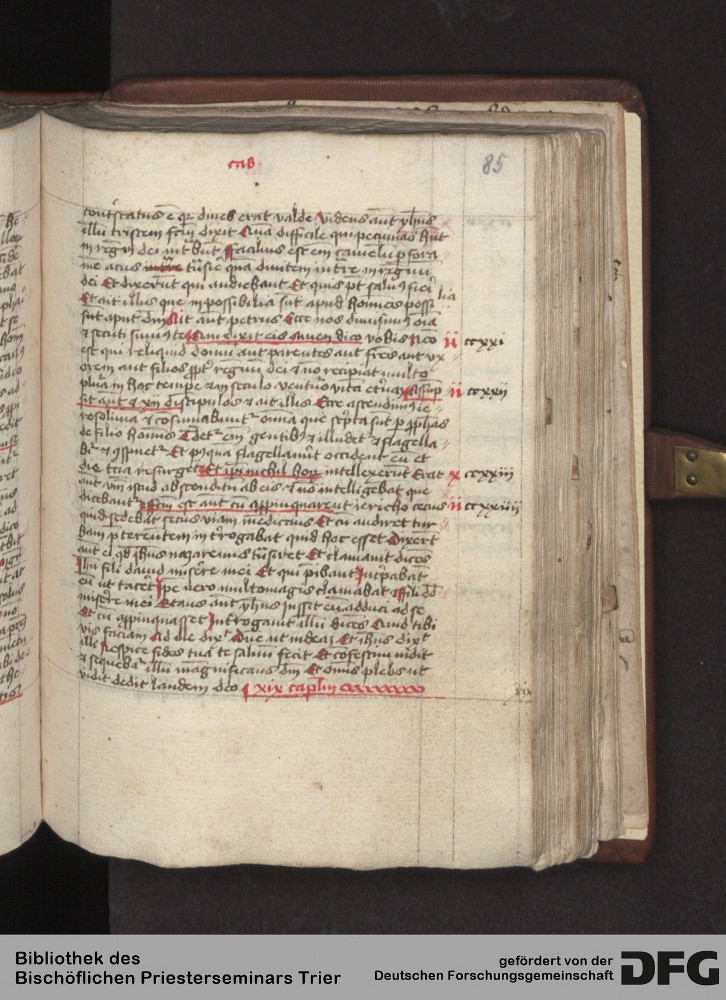 cab
85
est q̄r dives erat valde Videns aut yh̄us
illū tristem dixit Quā difficile qui pecunias
in regnū dei Facilius est em̄ camelū p fora
me acus tūsire quā divitem intrare in regnū
dei Et dixerūt qui audiebant Et quis pt salvus fieri
Et ait illis que inpossibilia sūt apud homines
sūt aput dm̄ Ait aut petrus Ecce nos dimisimus oīa
et secuti sumus te Qui dixit eis amen dico vobis nēo ii ccxxi
est qui reliquid domū aut parentes aut frēs aut ux
orem aut filios regnū dei et no recipiat multo
plura in hoc tempe et in seculo venturo vitā eternā Assūp ii ccxxii
sit aut xii discipulos et ait illis Ecce ascendimus ie
rosolima et omnia que scripta sūt p
de filio hominis Tradetur em̄ gentibus et illudet et flagella
Et postqua flagellaverit occident eū et
die tercia resurget Et ipsi nichil horū intellexerūt Erat x ccxxiii
aut absconditū ab eis et nō intelligebāt que
dicebantur Fcm̄ est aut cū appinquarent iericho cecus ii ccxxiiii
quidā sedebat secus viam Et cū audiret tur
bam p̄tereuntem interrogabat quid hoc esset Dixerūt
aut ei qd ih̄us nazarenus tūsiret Et clamavit dicēs
Ih̄u fili david miserere mei Et qui p̄ibant Increpabāt
eū ut taceret Ipse vero multo magis clamabat Fili dd̄
miserere mei Stans aut yh̄us iussit eū adduci ad se
Et cū appinquasset Interrogavit illū dicēs Quid tibi
vis faciam At ille dixt Dn̄e ut videā Et ih̄us dixt
illi Respice fides tua te salvū fecit Et cōfestim vidit
et sequebat illū magnificans dm̄ Et omīs plebs ut
vidit dedit laudem deo xix caplm
Bibliothek des
Bischöflichen Priesterseminars Trier
gefördert von der
Deutschen Forschungsgemeinschaft
DFG